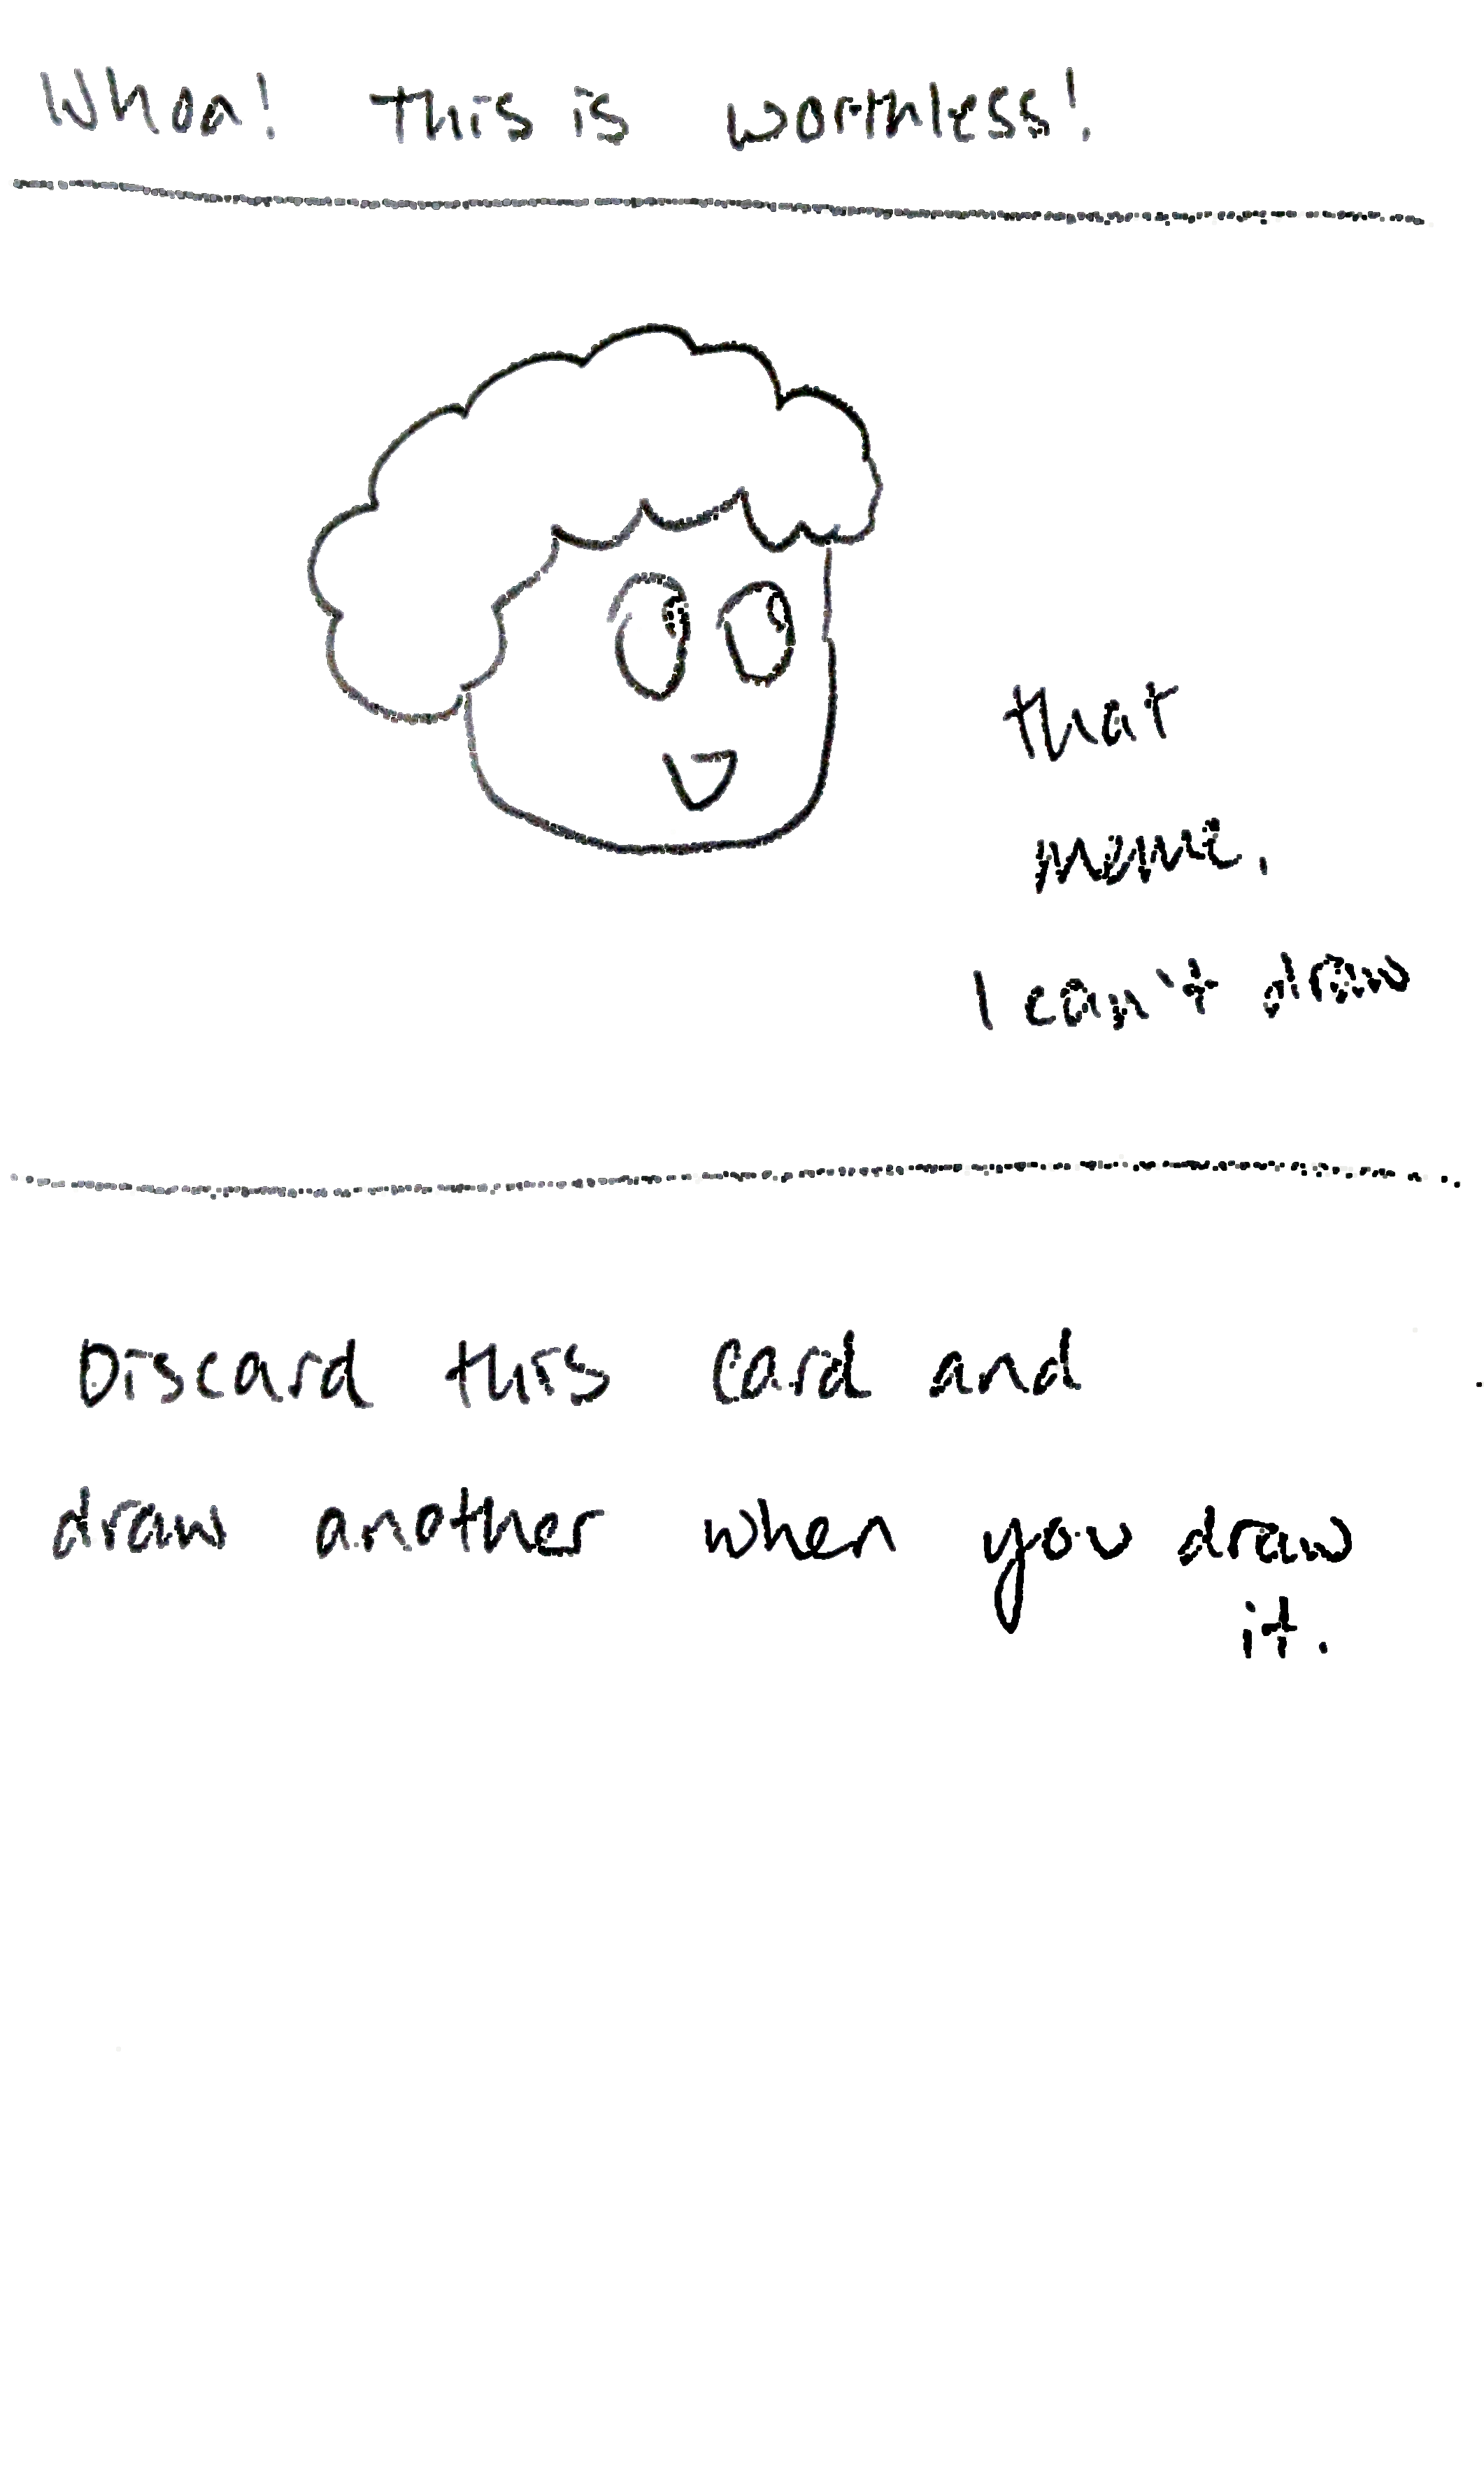 Whoa! This is worthless!
that
meme.
I can't draw
Discard this card and
draw another when you draw
it.